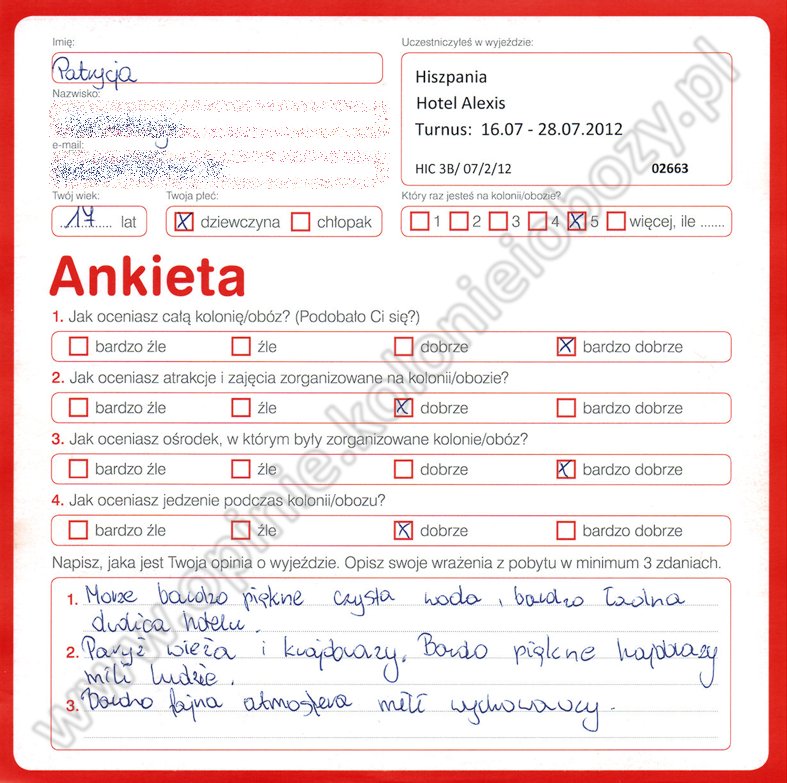 Imię:
Patrycja
Uczestniczyłeś w wyjeździe:
Hiszpania
Hotel Alexis
Turnus: 16.07 - 28.07.2012
HIC 3B/ 07/2/12 02663
Nazwisko:
e-mail:
Twój wiek:
17 lat
Twoja płeć:
dziewczyna chłopak
Który raz jesteś na kolonii/obozie?
1 2 3 4 5 więcej, ile .......
Ankieta
1. Jak oceniasz całą kolonię/obóz? (Podobało Ci się?)
bardzo źle źle dobrze bardzo dobrze
2. Jak oceniasz atrakcje i zajęcia zorganizowane na kolonii/obozie?
bardzo źle źle dobrze bardzo dobrze
3. Jak oceniasz ośrodek, w którym były zorganizowane kolonie/obóz?
bardzo źle źle dobrze bardzo dobrze
4. Jak oceniasz jedzenie podczas kolonii/obozu?
bardzo źle źle dobrze bardzo dobrze
Napisz, jaka jest Twoja opinia o wyjeździe. Opisz swoje wrażenia z pobytu w minimum 3 zdaniach.
1. Morze bardzo piękne czysta woda, bardzo ładna
okolica hotelu.
2. Paryż wieża i krajobrazy. Bardo piękne krajobrazy
mili ludzie.
3. Bardzo fajna atmosfera mili wychowawcy.
www.opinie.kolonieiobozy.pl